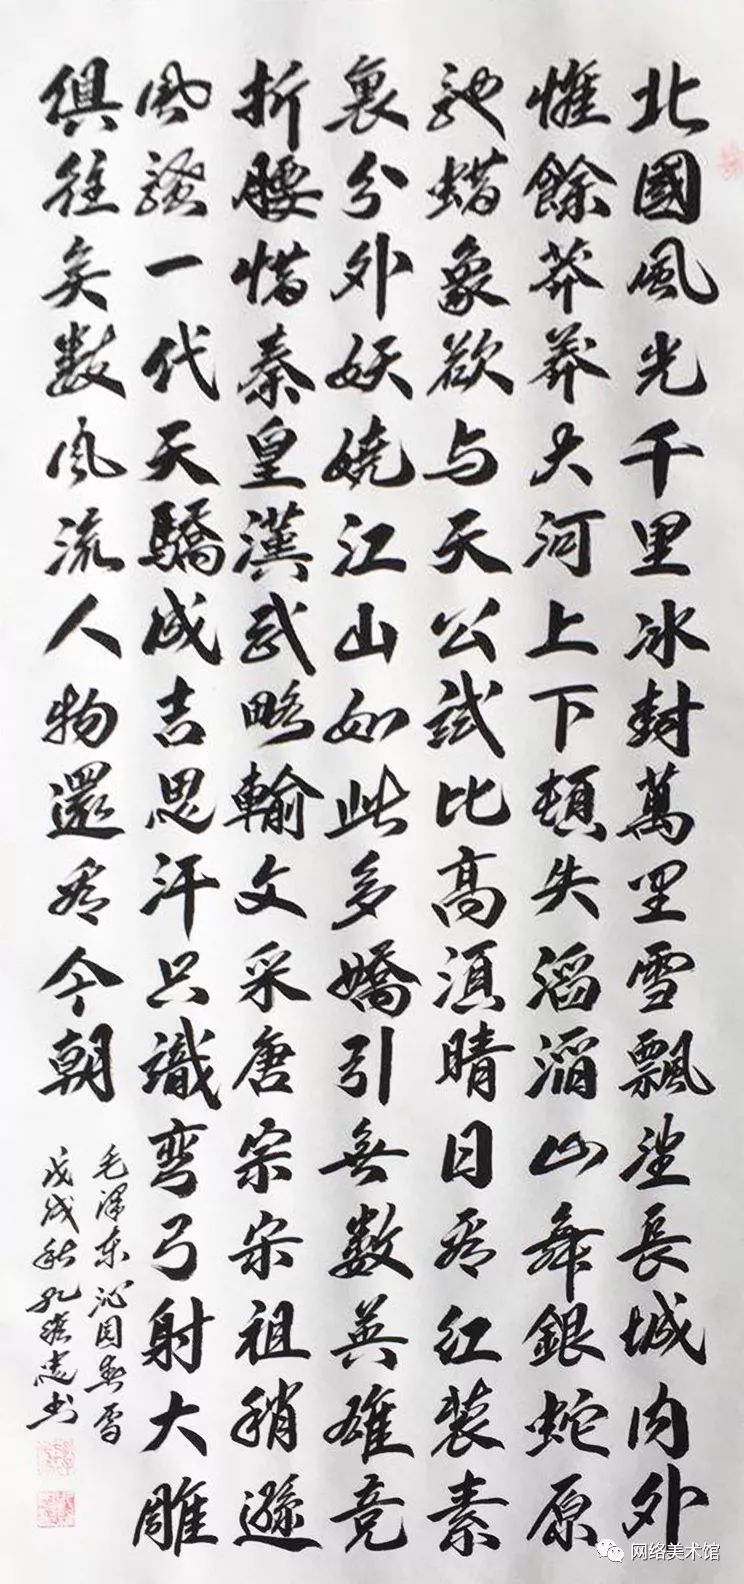 北國風光千里冰封萬里雪飄望長城内外
惟餘莽莽大河上下頓失滔滔山舞銀蛇原
馳蜡象欲与天公試比高須晴日看红装素
裹分外妖娆江山如此多嬌引無數英雄竞
折腰惜秦皇漢武略輸文采唐宗宋祖稍遜
风骚一代天驕成吉思汗只識弯弓射大雕
俱往矣数风流人物還看今朝
毛泽东沁园春雪
戊戌秋孔志书
网络美术馆